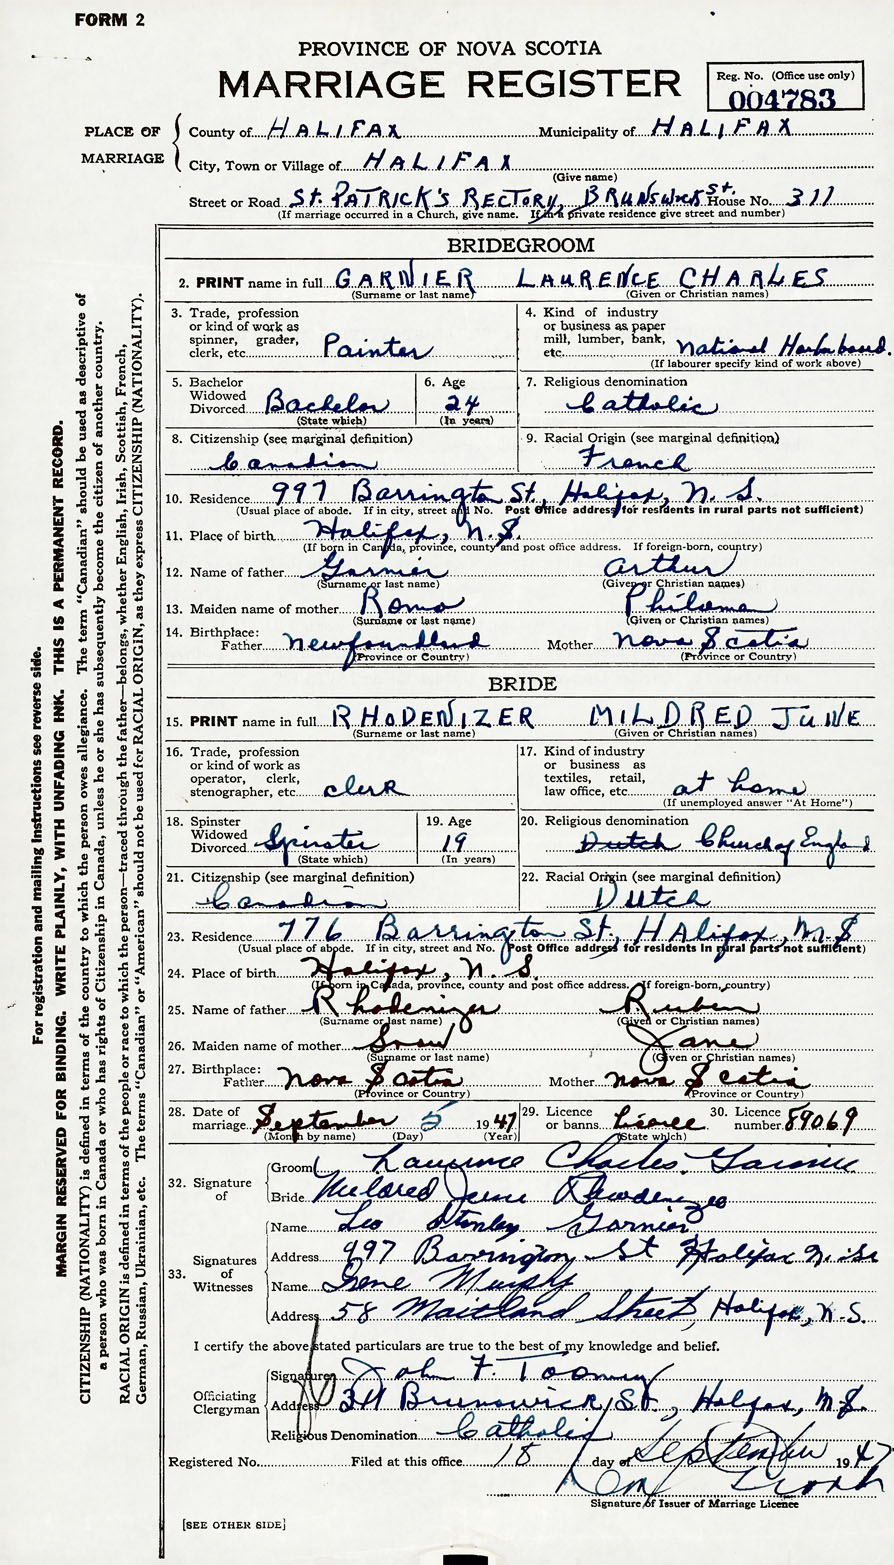 FORM 2
PROVINCE OF NOVA SCOTIA
MARRIAGE REGISTER
Reg. No. (Office use only)
004783
PLACE OF MARRIAGE
County of HALIFAX Municipality of HALIFAX
City, Town or Village of HALIFAX
(Give name)
Street or Road St. PATRICK'S RECTORY, BRUNSWICK St. House No. 311
(If marriage occurred in a Church, give name. If in a private residence give street and number)
BRIDEGROOM
2. PRINT name in full GARNIER LAURENCE CHARLES
(Surname or last name) (Given or Christian names)
3. Trade, profession or kind of work as spinner, grader, clerk, etc. Painter
4. Kind of industry or business as paper mill, lumber, bank, etc. National Harbaboard.
(If labourer specify kind of work above)
5. Bachelor Widowed Divorced Bachelor
(State which)
6. Age 24
(In years)
7. Religious denomination Catholic
8. Citizenship (see marginal definition)
Canadian
9. Racial Origin (see marginal definition)
French
10. Residence 997 Barrington St., Halifax, N. S.
(Usual place of abode. If in city, street and No. Post Office address for residents in rural parts not sufficient)
11. Place of birth Halifax, N.S.
(If born in Canada, province, county and post office address. If foreign-born, country)
12. Name of father Garnier Arthur
(Surname or last name) (Given or Christian names)
13. Maiden name of mother Romo Philoman
(Surname or last name) (Given or Christian names)
14. Birthplace:
Father Newfoundland Mother Nova Scotia
(Province or Country) (Province or Country)
BRIDE
15. PRINT name in full RHODENIZER MILDRED JUNE
(Surname or last name) (Given or Christian names)
16. Trade, profession or kind of work as operator, clerk, stenographer, etc. clerk
17. Kind of industry or business as textiles, retail, law office, etc. at home
(If unemployed answer "At Home")
18. Spinster Widowed Divorced Spinster
(State which)
19. Age 19
(In years)
20. Religious denomination
Dutch Church of England
21. Citizenship (see marginal definition)
Canadian
22. Racial Origin (see marginal definition)
Dutch
23. Residence 776 Barrington St, Halifax, N.S
(Usual place of abode. If in city, street and No. Post Office address for residents in rural parts not sufficient)
24. Place of birth Halifax, N. S.
(If born in Canada, province, county and post office address. If foreign-born, country)
25. Name of father Rhodenizer Ruben
(Surname or last name) (Given or Christian names)
26. Maiden name of mother Snow Jane
(Surname or last name) (Given or Christian names)
27. Birthplace:
Father Nova Scotia Mother Nova Scotia
(Province or Country) (Province or Country)
28. Date of marriage September 5 1947
(Month by name) (Day) (Year)
29. Licence or banns
(State which)
30. Licence number 89069
32. Signature of
Groom Laurence Charles Garnier
Bride Mildred June Rhodenizer
33. Signatures of Witnesses
Name Leo Stanley Garnier
Address 997 Barrington St Halifax N.S.
Name Gene Murphy
Address 58 Maitland Street, Halifax, N.S.
I certify the above stated particulars are true to the best of my knowledge and belief.
Officiating Clergyman
Signature John F. Toomey
Address 311 Brunswick St., Halifax, N.S.
Religious Denomination Catholic
Registered No. Filed at this office 18 day of September 1947
Signature of Issuer of Marriage Licence
[SEE OTHER SIDE]
For registration and mailing instructions see reverse side.
MARGIN RESERVED FOR BINDING. WRITE PLAINLY, WITH UNFADING INK. THIS IS A PERMANENT RECORD.
CITIZENSHIP (NATIONALITY) is defined in terms of the country to which the person owes allegiance. The term "Canadian" should be used as descriptive of
a person who was born in Canada or who has rights of Citizenship in Canada, unless he or she has subsequently become the citizen of another country.
RACIAL ORIGIN is defined in terms of the people or race to which the person—traced through the father—belongs, whether English, Irish, Scottish, French,
German, Russian, Ukrainian, etc. The terms "Canadian" or "American" should not be used for RACIAL ORIGIN, as they express CITIZENSHIP (NATIONALITY).